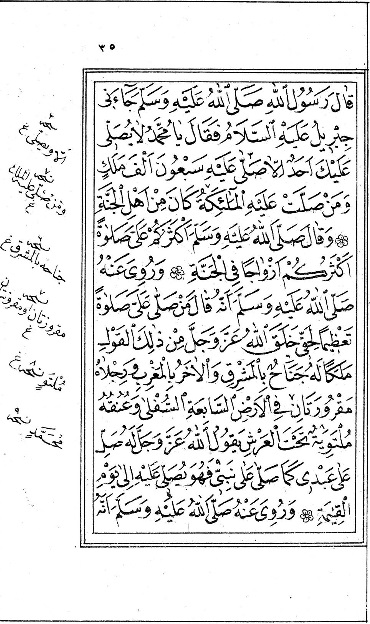 ٣٥
قَالَ رَسُولُ اللهِ صَلَّى اللهُ عَلَيْهِ وَسَلَّمَ جَاءَنِي
جِبْرِيلُ عَلَيْهِ السَّلَامُ فَقَالَ يَا مُحَمَّدُ لَا يُصَلِّي
عَلَيْكَ أَحَدٌ إِلَّا صَلَّى عَلَيْهِ سَبْعُونَ أَلْفَ مَلَكٍ
وَمَنْ صَلَّتْ عَلَيْهِ الْمَلَائِكَةُ كَانَ مِنْ أَهْلِ الْجَنَّةِ
وَقَالَ صَلَّى اللهُ عَلَيْهِ وَسَلَّمَ أَكْثَرُكُمْ عَلَيَّ صَلَوٰةً
أَكْثَرُكُمْ أَزْوَاجًا فِي الْجَنَّةِ وَرُوِيَ عَنْهُ
صَلَّى اللهُ عَلَيْهِ وَسَلَّمَ أَنَّهُ قَالَ مَنْ صَلَّى عَلَيَّ صَلَوٰةً
تَعْظِيمًا لِحَقِّي خَلَقَ اللهُ عَزَّ وَجَلَّ مِنْ ذٰلِكَ الْقَوْلِ
مَلَكًا لَهُ جَنَاحٌ بِالْمَشْرِقِ وَالْآخَرُ بِالْمَغْرِبِ وَرِجْلَاهُ
مَقْرُورَتَانِ فِي الْأَرْضِ السَّابِعَةِ السُّفْلَى وَعُنُقُهُ
مُلْتَوِيَةٌ تَحْتَ الْعَرْشِ يَقُولُ اللهُ عَزَّ وَجَلَّ لَهُ صَلِّ
عَلَى عَبْدِي كَمَا صَلَّى عَلَى نَبِيِّي فَهُوَ يُصَلِّي عَلَيْهِ إِلَى يَوْمِ
الْقِيٰمَةِ وَرُوِيَ عَنْهُ صَلَّى اللهُ عَلَيْهِ وَسَلَّمَ أَنَّهُ